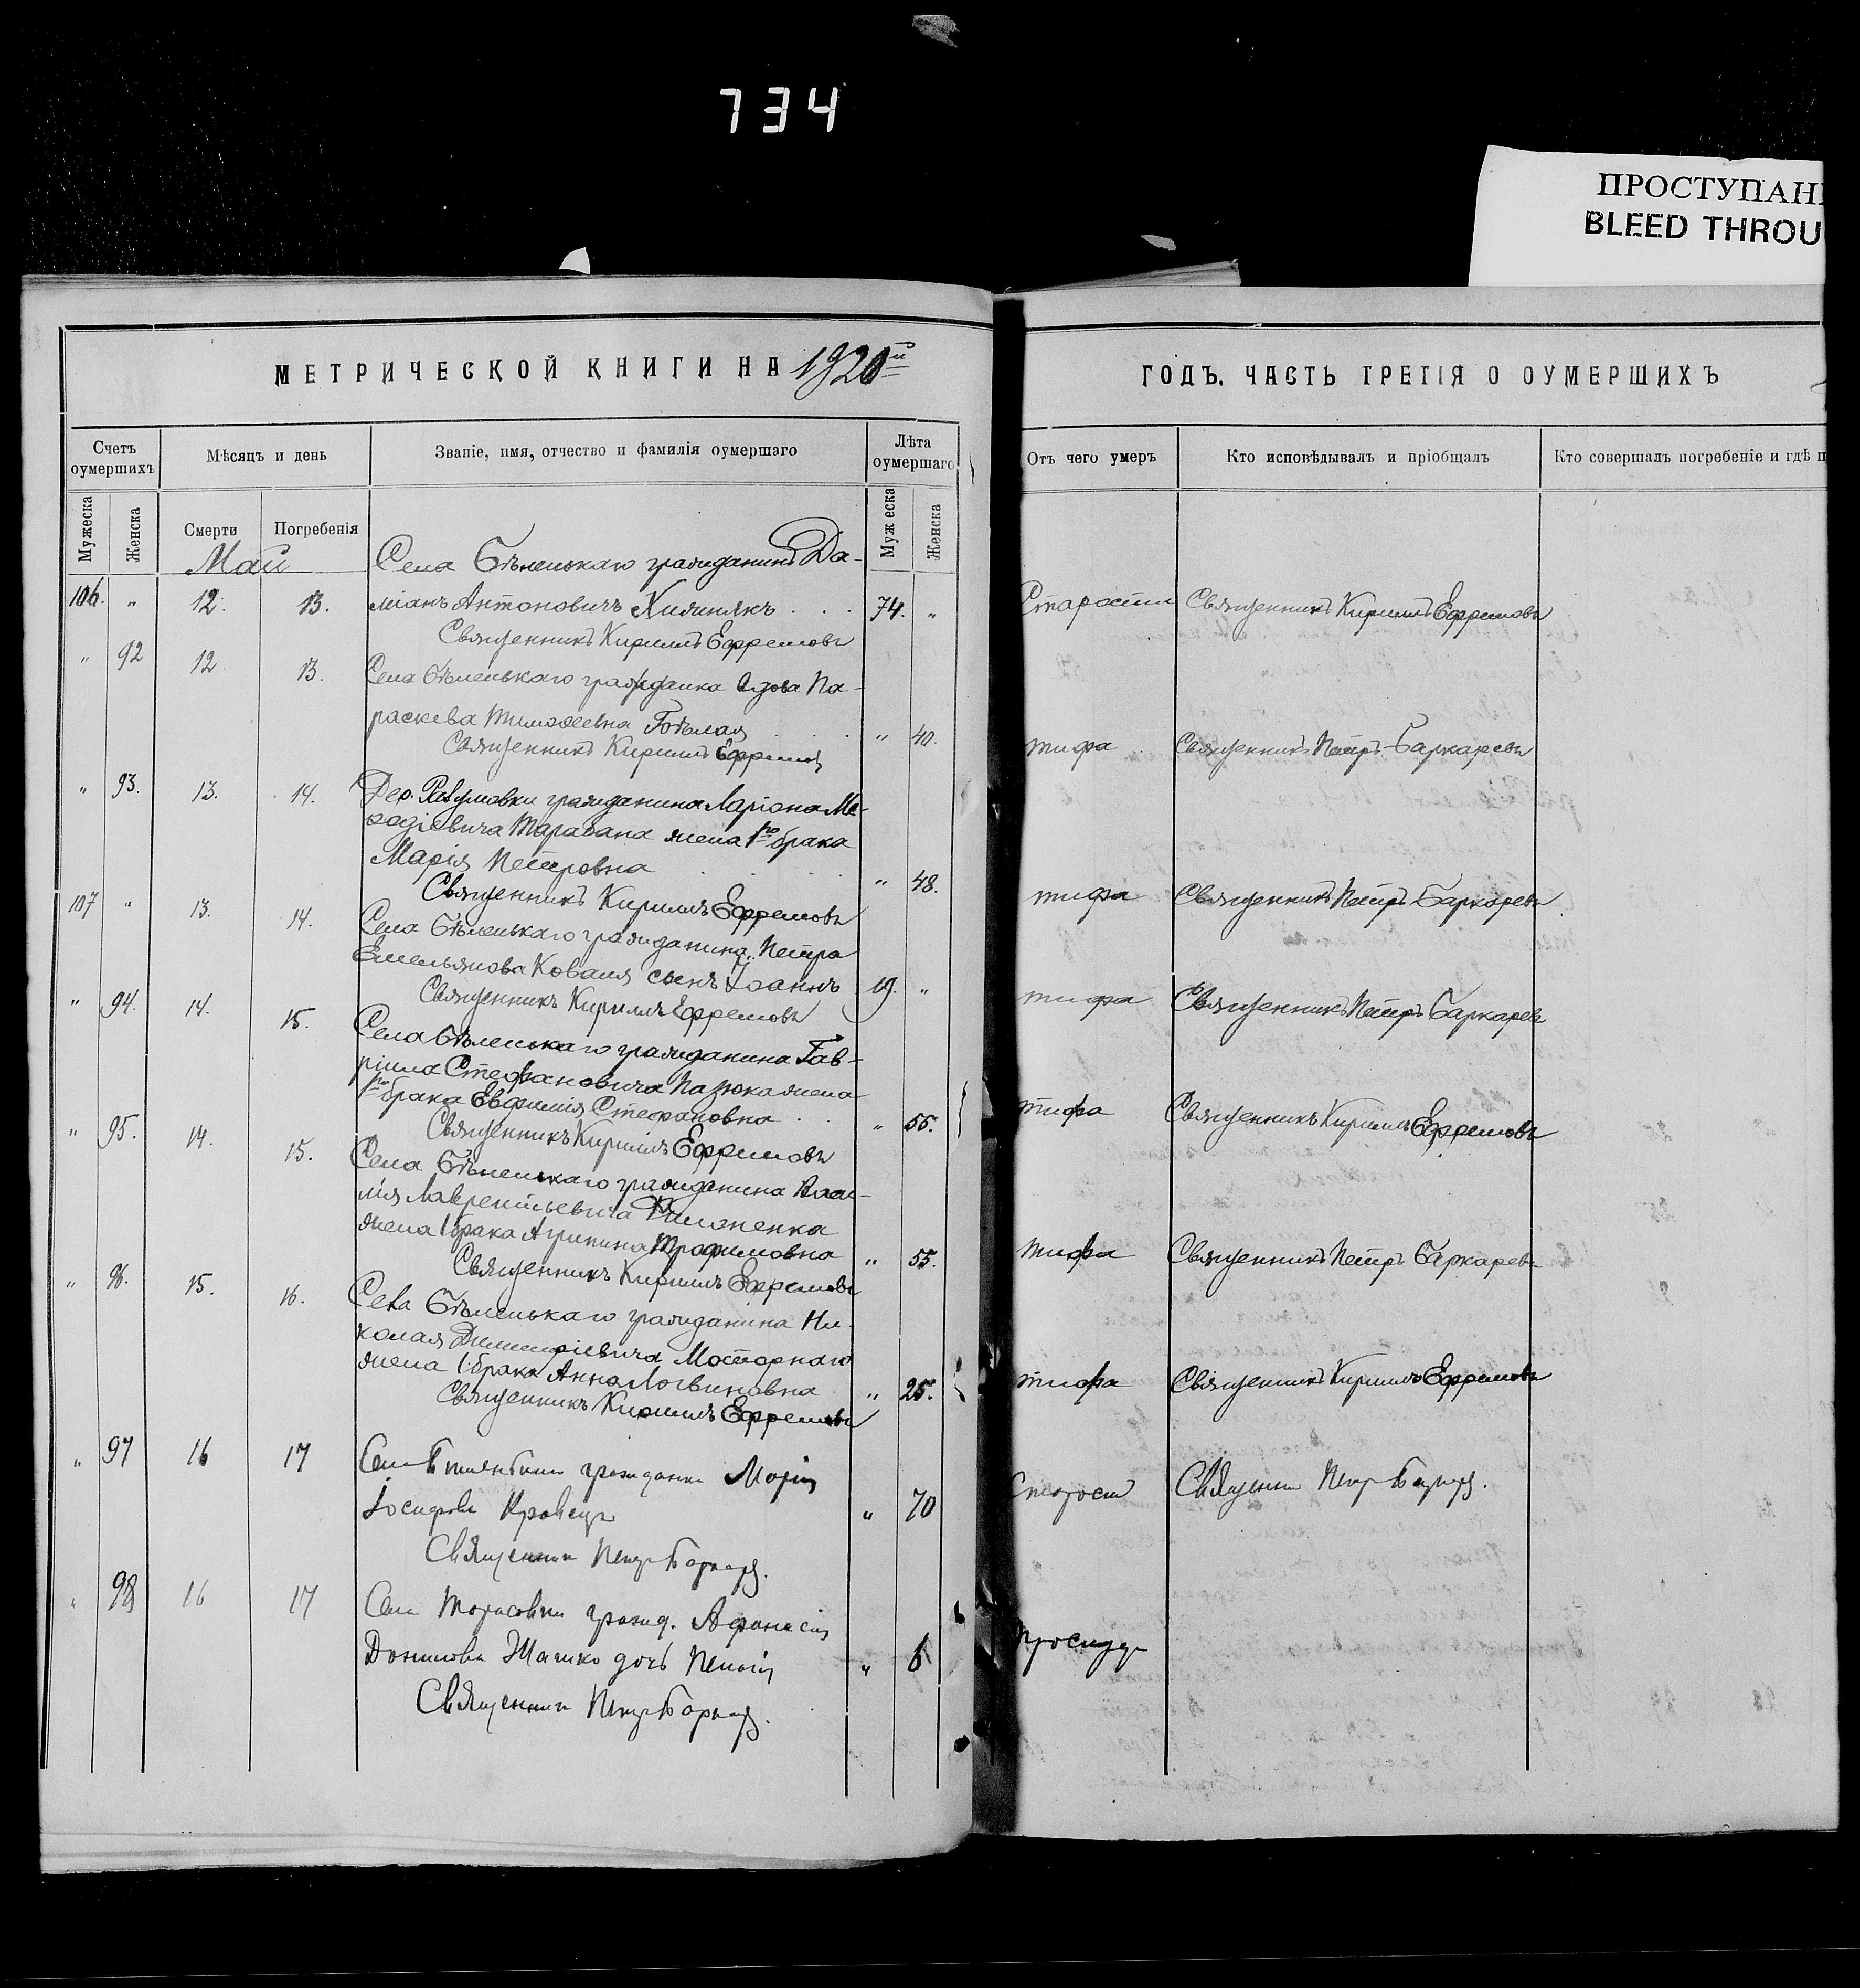 734
ПРОСТУПАНИ
BLEED THROU
МЕТРИЧЕСКОЙ КНИГИ НА 1920й
ГОДЪ. ЧАСТЬ ТРЕТІЯ О ОУМЕРШИХЪ
Счетъ оумершихъ
Мѣсяцъ и день
Званіе, имя, отчество и фамилія оумершаго
Лѣта оумершаго
Отъ чего умеръ
Кто исповѣдывалъ и пріобщалъ
Кто совершалъ погребеніе и гдѣ п
Мужеска
Женска
Смерти
Погребенія
Муж еска
Женска
Май
Села Бѣленькаго гражданинъ Да-
106. " 12. 13. міанъ Антоновичъ 74. " Старости Священникъ Кириллъ Ефремовъ
Священникъ Кириллъ Ефремовъ
" 92 12 13. Села Бѣленькаго гражданка вдова Па-
раскева Тимофеевна " 40. тифа Священникъ Петръ Баркаревъ
Священникъ Кириллъ Ефремовъ
" 93. 13. 14. Дер. Разумовки гражданина Ларіона Ме-
фодіевича Тарарана жена 1го брака
Марія Петровна " 48. тифа Священникъ Петръ Баркаревъ
Священникъ Кириллъ Ефремовъ
107 " 13. 14. Села Бѣленькаго гражданина Петра
Емельянова Коваля сынъ Іоаннъ 19. " тифа Священникъ Петръ Баркаревъ
Священникъ Кириллъ Ефремовъ
" 94. 14. 15. Села Бѣленькаго гражданина Гав-
ріила Стефановича Пазюка жена
1го брака Евфимія Стефановна " 55. тифа Священникъ Кириллъ Ефремовъ
Священникъ Кириллъ Ефремовъ
" 95. 14. 15. Села Бѣленькаго гражданина
Лаврентьевича Филоненка
жена 1 брака Агрипина Трофимовна " 55. тифа Священникъ Петръ Баркаревъ
Священникъ Кириллъ Ефремовъ
" 96. 15. 16. Села Бѣленькаго гражданина Ни-
колая Димитріевича
жена 1 брака Анна Логвиновна " 25. тифа Священникъ Кириллъ Ефремовъ
Священникъ Кириллъ Ефремовъ
" 97 16 17 Села гражданка Марія
Іосифова Кравецъ " 70 Старости Священникъ Петръ
Священникъ Петръ
" 98 16 17 Села Тарасовки гражд. Афанасія
Данилова дочь " 6 простуды
Священникъ Петръ